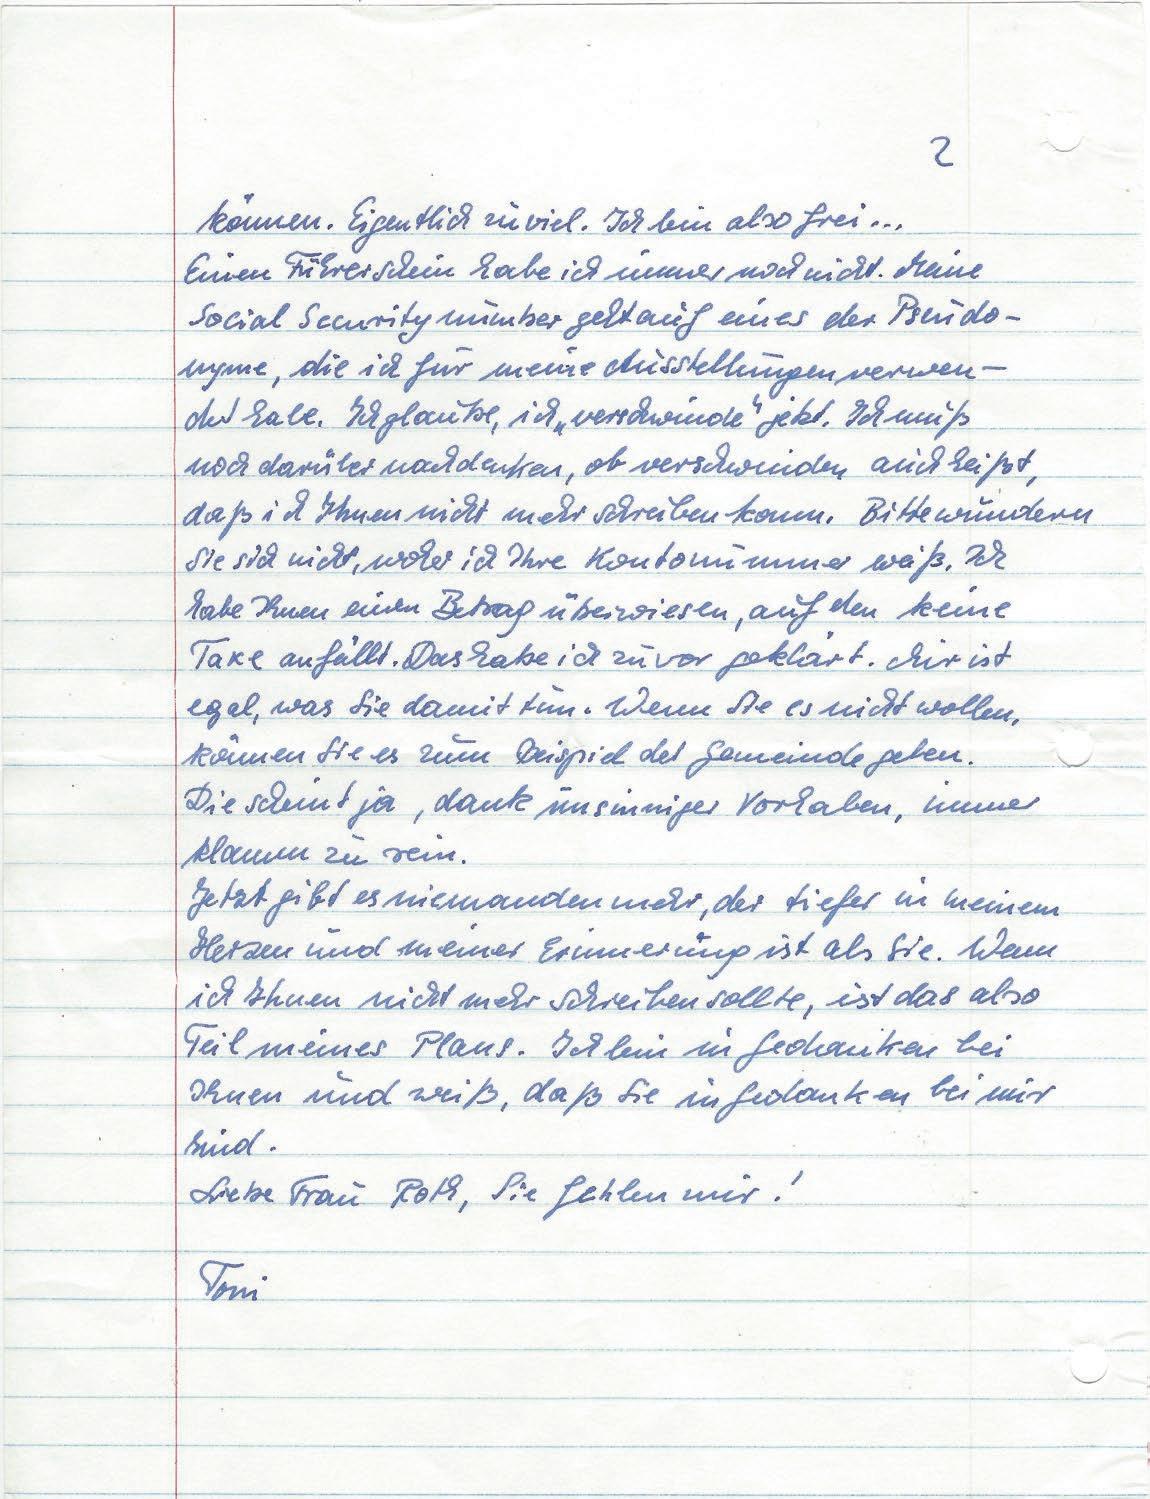 2
können. Eigentlich zuviel. Ich bin also frei...
Einen Führerschein habe ich immer noch nicht. Meine
Social Security number geht auf eines der Pseudo-
nyme, die ich für meine Ausstellungen verwen-
det habe. Ich glaube, ich „verschwinde“ jetzt. Ich muß
noch darüber nachdenken, ob verschwinden auch heißt,
daß ich Ihnen nicht mehr schreiben kann. Bitte wundern
Sie sich nicht, woher ich Ihre Kontonummer weiß. Ich
habe Ihnen einen Betrag überwiesen, auf den keine
Taxe anfällt. Das habe ich zuvor geklärt. Mir ist
egal, was Sie damit tun. Wenn Sie es nicht wollen,
können Sie es zum Beispiel der Gemeinde geben.
Die scheint ja, dank unsinniger Vorhaben, immer
klamm zu sein.
Jetzt gibt es niemanden mehr, der tiefer in meinem
Herzen und meiner Erinnerung ist als Sie. Wenn
ich Ihnen nicht mehr schreiben sollte, ist das also
Teil meines Plans. Ich bin in Gedanken bei
Ihnen und weiß, daß Sie in Gedanken bei mir
sind.
Liebe Frau Roth, Sie fehlen mir!
Toni